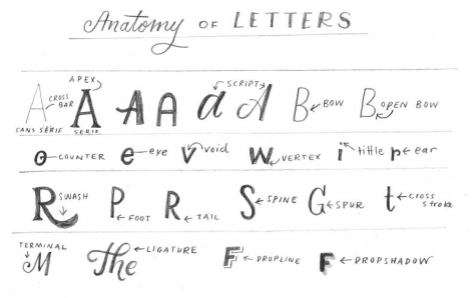 Anatomy OF LETTERS
APEX SCRIPT
A CROSS BAR A A A a A B BOW B OPEN BOW
SANS SERIF SERIF
o COUNTER e eye v void w VERTEX i tittle p ear
R SWASH P FOOT R TAIL S SPINE G SPUR t CROSS Stroke
TERMINAL LIGATURE
M The F DROPLINE F DROPSHADOW